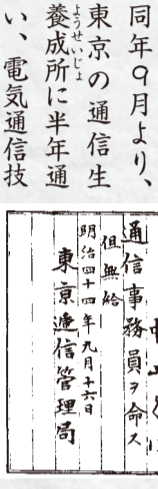 同年9月より、
東京の通信生
養成所に半年通
い、電気通信技
通信事務員ヲ命ス
但無給
明治四十四年九月十六日
東京逓信管理局